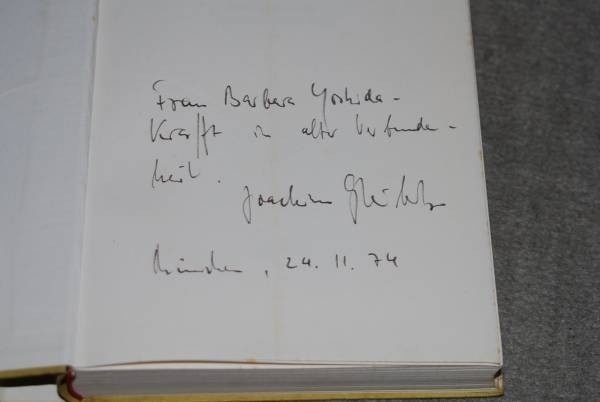 Frau Barbara Yoshida-
Krafft in alter Verbunden-
heit.
Joachim
München, 24. 11. 74